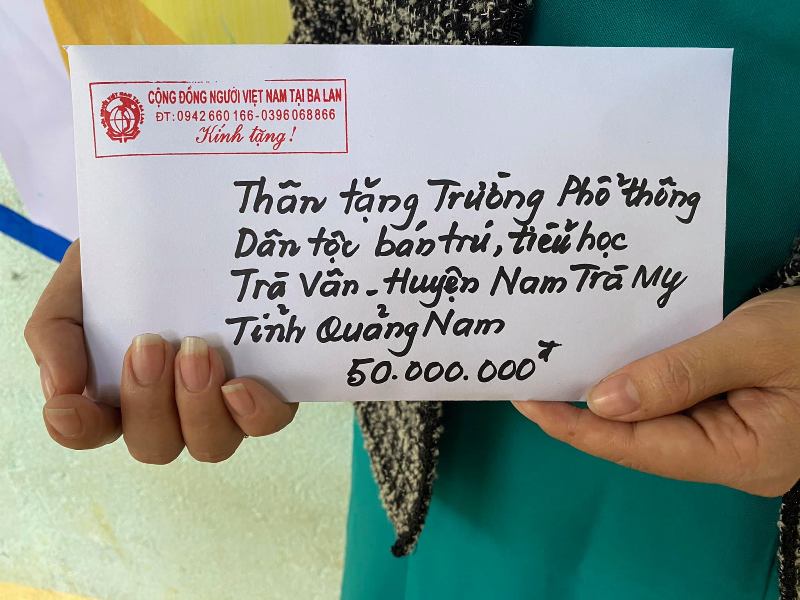 CỘNG ĐỒNG NGƯỜI VIỆT NAM TẠI BA LAN
ĐT: 0942 660 166 - 0396068866
Kính tặng!
Thân tặng Trường Phổ thông
Dân tộc bán trú, tiểu học
Trà Vân - Huyện Nam Trà My
Tỉnh Quảng Nam
50.000.000đ